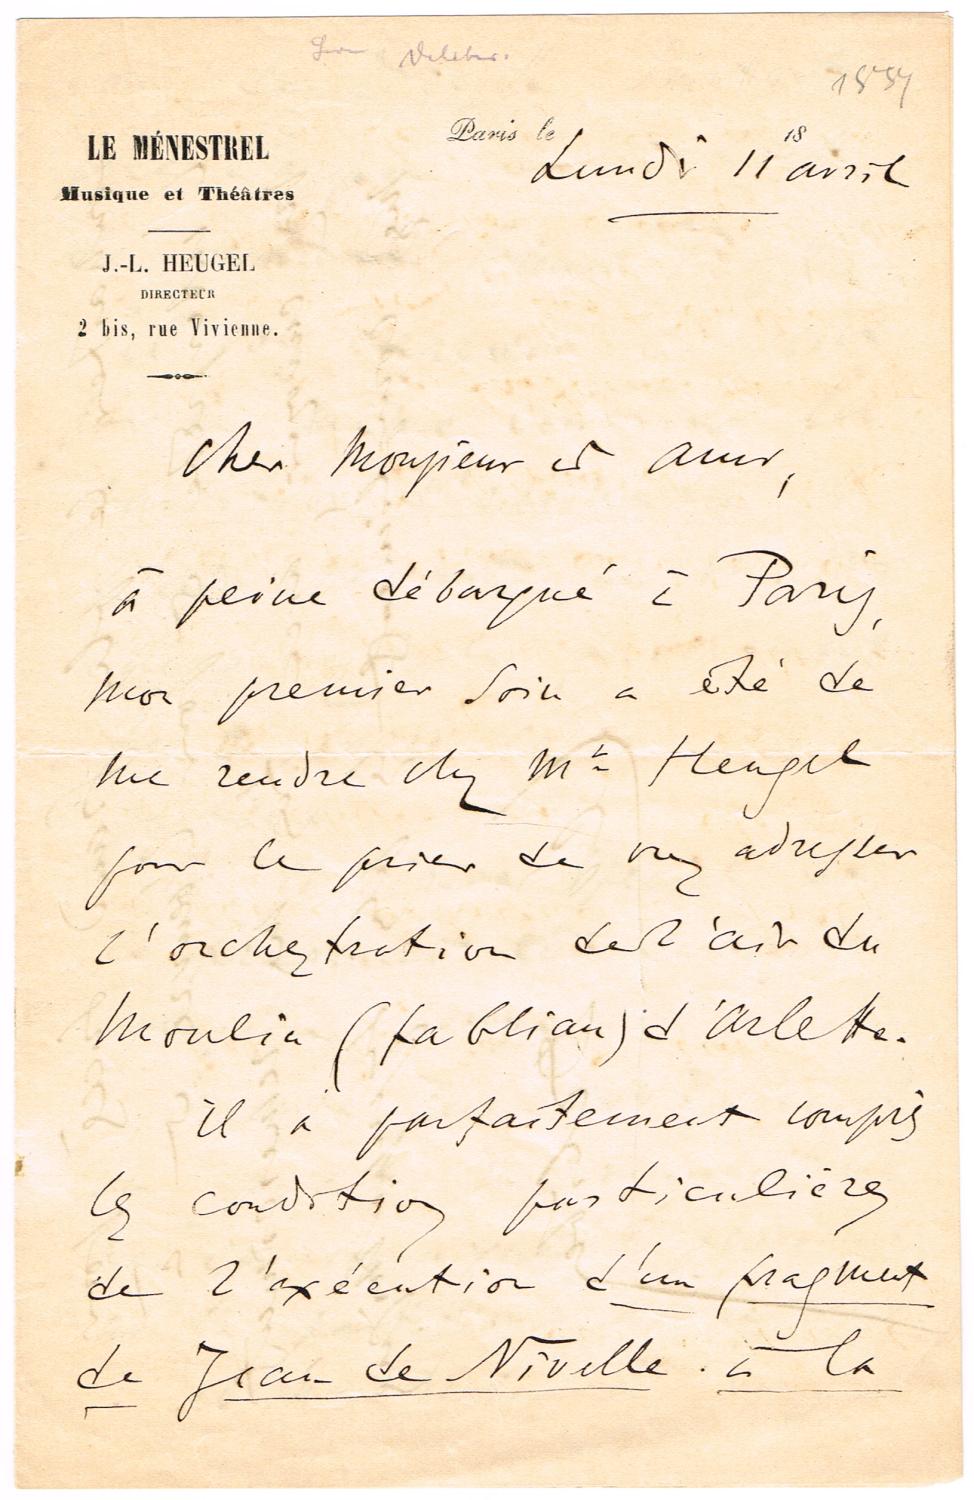 Leo Delibes.
1884
LE MÉNESTREL
Musique et Théâtres
J.-L. HEUGEL
DIRECTEUR
2 bis, rue Vivienne.
Paris le
Lundi 11 avril
18
Cher Monsieur et ami,
à peine débarqué à Paris,
mon premier soin a été de
me rendre chez Mr Heugel
pour le prier de vous adresser
l'orchestration de l'air du
Moulin (fabliau) d'Arlette.
il a parfaitement compris
les conditions particulières
de l'exécution d'un fragment
de Jean de Nivelle. à la